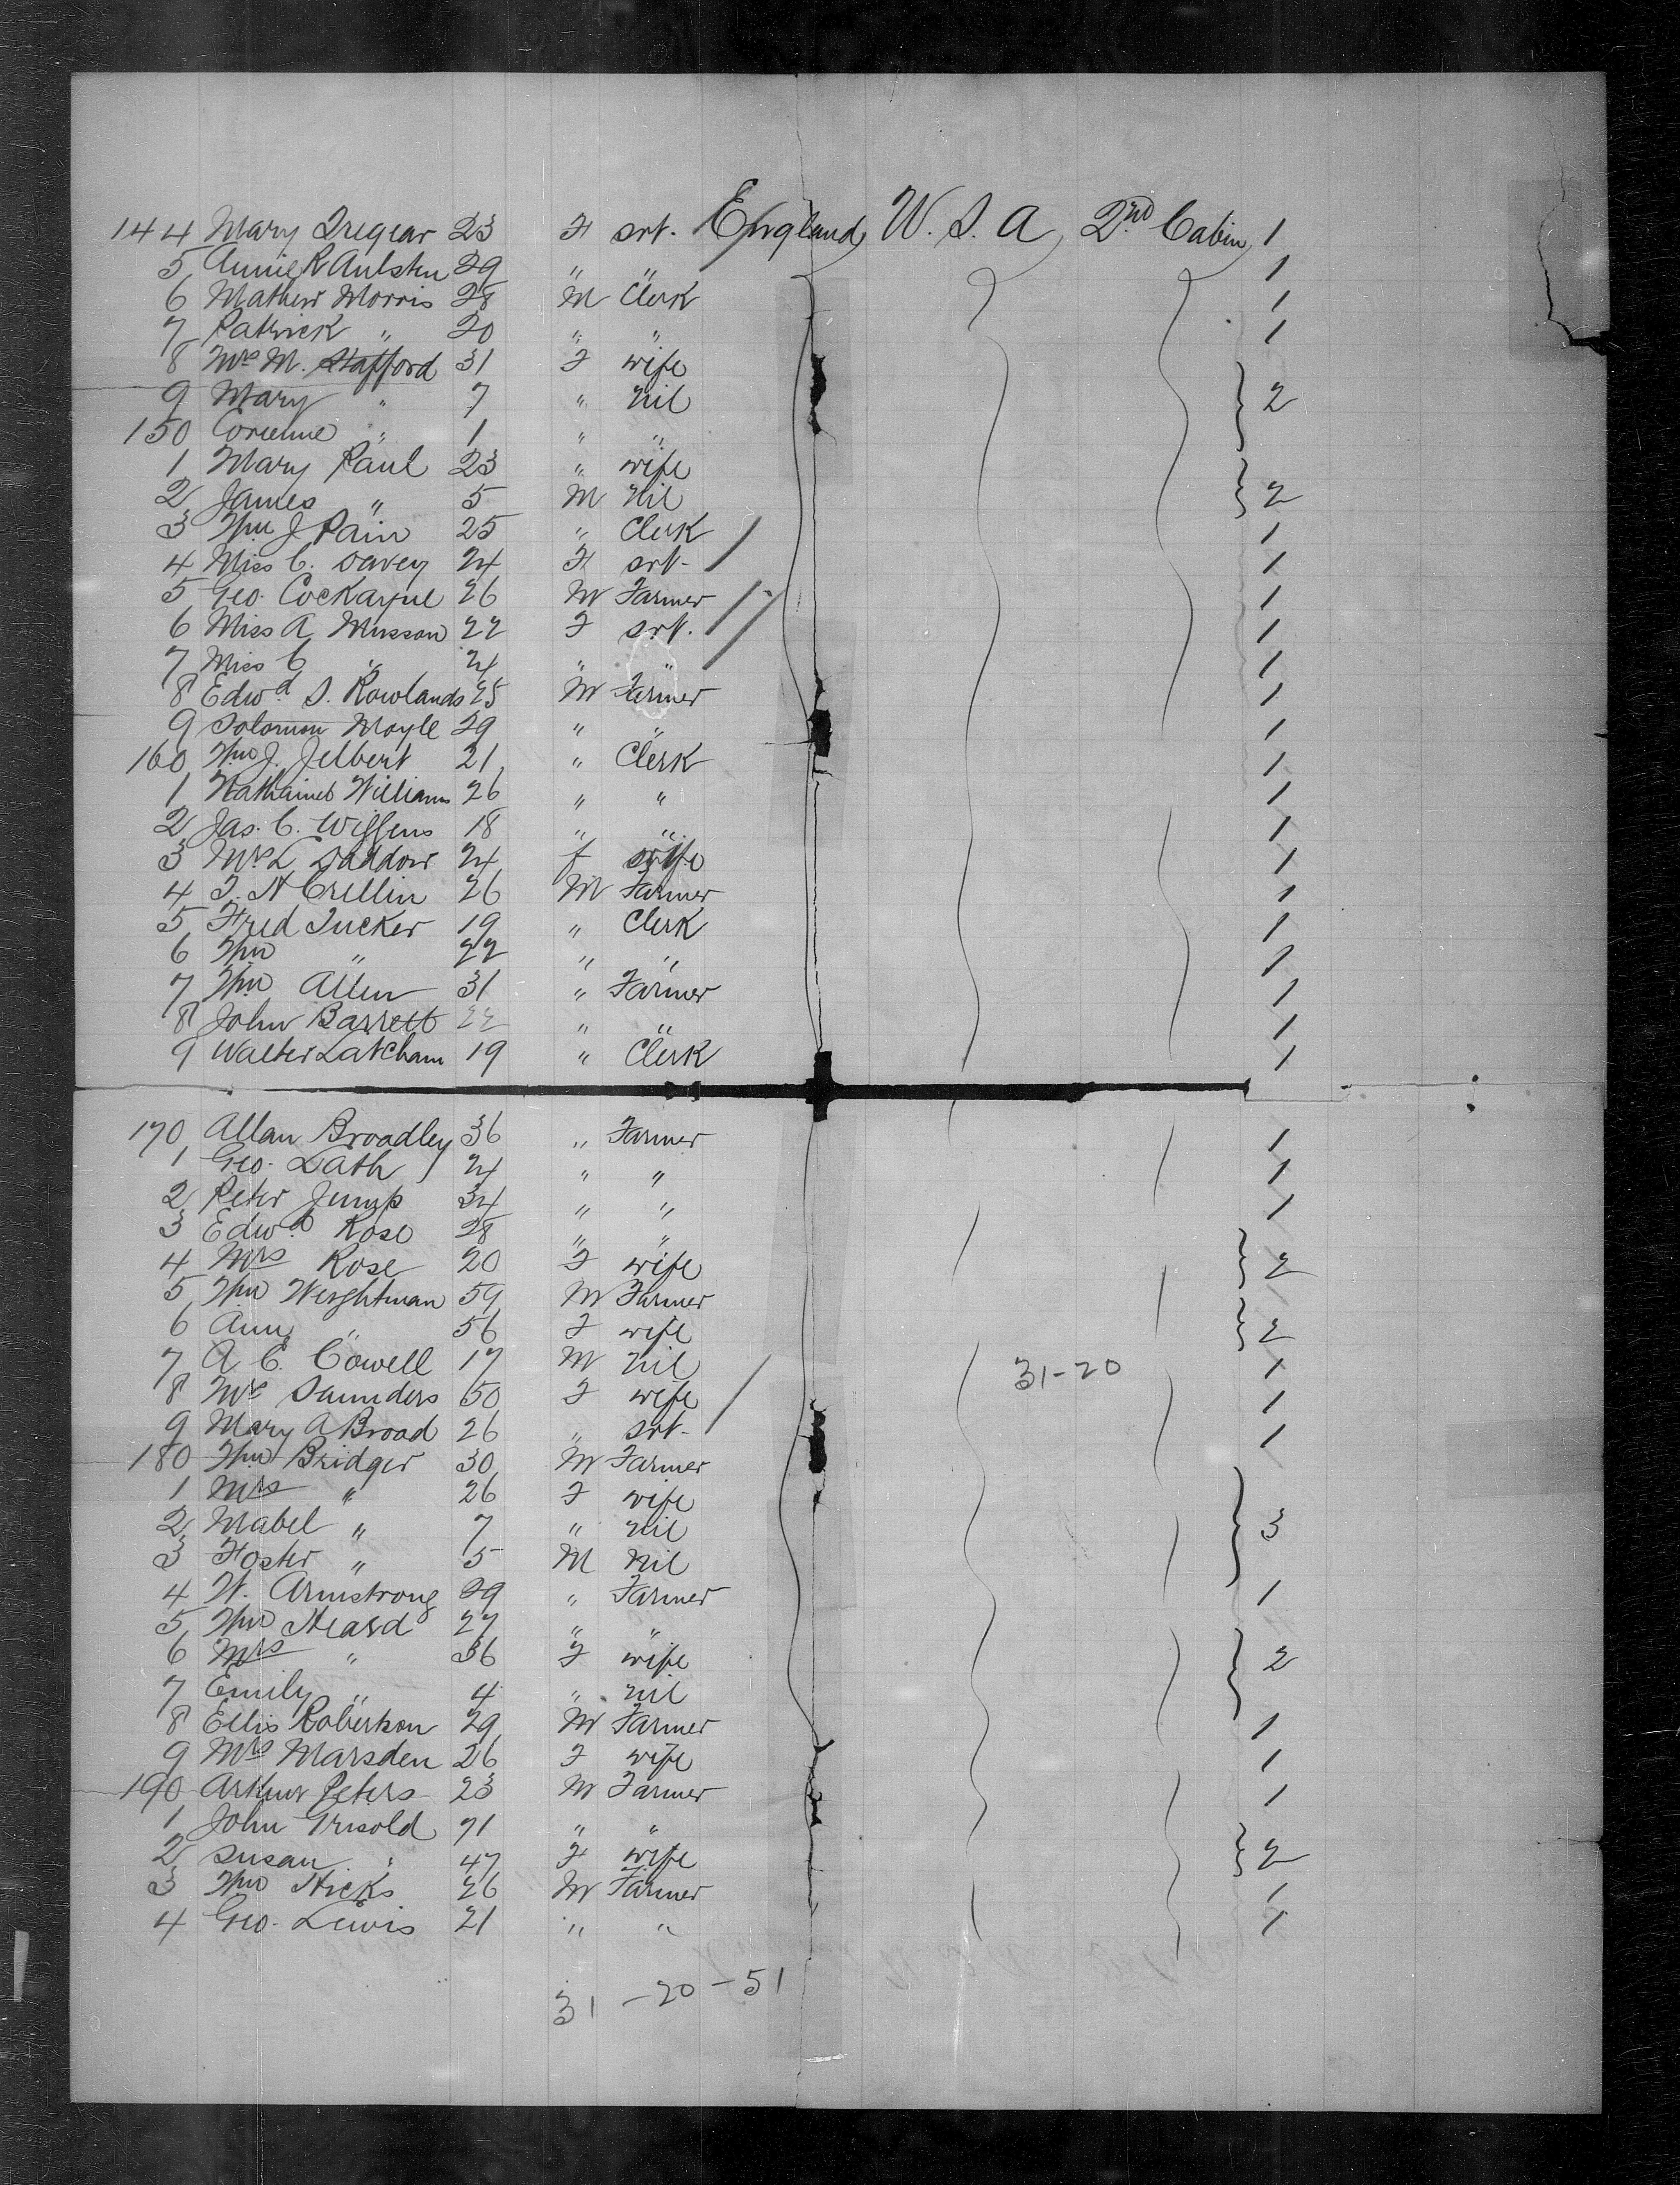 144 Mary Tregear 23 F srt. England U.S.A 2nd Cabin 1
5 Annie R Aulsten 29 " " 1
6 Mathew Morris 28 M Clerk 1
7 Patrick " 20 " " 1
8 Mrs M. Stafford 31 F wife
9 Mary " 7 " Nil } 2
150 Corienne " 1 " "
1 Mary Paul 23 " wife
2 James " 5 M Nil } 2
3 Wm J Pain 25 " Clerk 1
4 Miss C. Davey 24 F srt. / 1
5 Geo. Cockayne 26 M Farmer 1
6 Miss A Musson 22 F srt. / 1
7 Miss C " 24 " " / 1
8 Edwd S. Rowlands 25 M Farmer 1
9 Solomon Moyle 29 " " 1
160 Wm J. Jelbert 21 " Clerk 1
1 Nathaniel Williams 26 " " 1
2 Jas. C. Wiffens 18 " " 1
3 Mrs L Daddow 24 f wife 1
4 T. N Crellin 26 M Farmer 1
5 Fred Tucker 19 " Clerk 1
6 Wm " 22 " " 1
7 Wm Allen 31 " Farmer 1
8 John Barrett 22 " " 1
9 Walter Latcham 19 " Clerk 1
170 Allan Broadley 36 " Farmer 1
1 Geo. Lath 24 " " 1
2 Peter Jump 34 " " 1
3 Edwd Rose 28 " "
4 Mrs Rose 20 F wife } 2
5 Wm Weightman 59 M Farmer
6 Ann " 56 F wife } 2
7 A C. Cowell 17 M Nil 31-20 1
8 Mrs Saunders 50 F wife 1
9 Mary A Broad 26 " srt. / 1
180 Wm Bridger 30 M Farmer
1 Mrs " 26 F wife
2 Mabel " 7 " Nil } 3
3 Foster " 5 M Nil
4 W. Armstrong 29 " Farmer 1
5 Wm Heard 27 " "
6 Mrs " 36 F wife } 2
7 Emily " 4 " Nil
8 Ellis Robertson 29 M Farmer 1
9 Mrs Marsden 26 F wife 1
190 Arthur Peters 23 M Farmer 1
1 John Grisold 71 " "
2 Susan " 47 F wife } 2
3 Wm Hicks 26 M Farmer 1
4 Geo. Lewis 21 " " 1
31 - 20 - 51